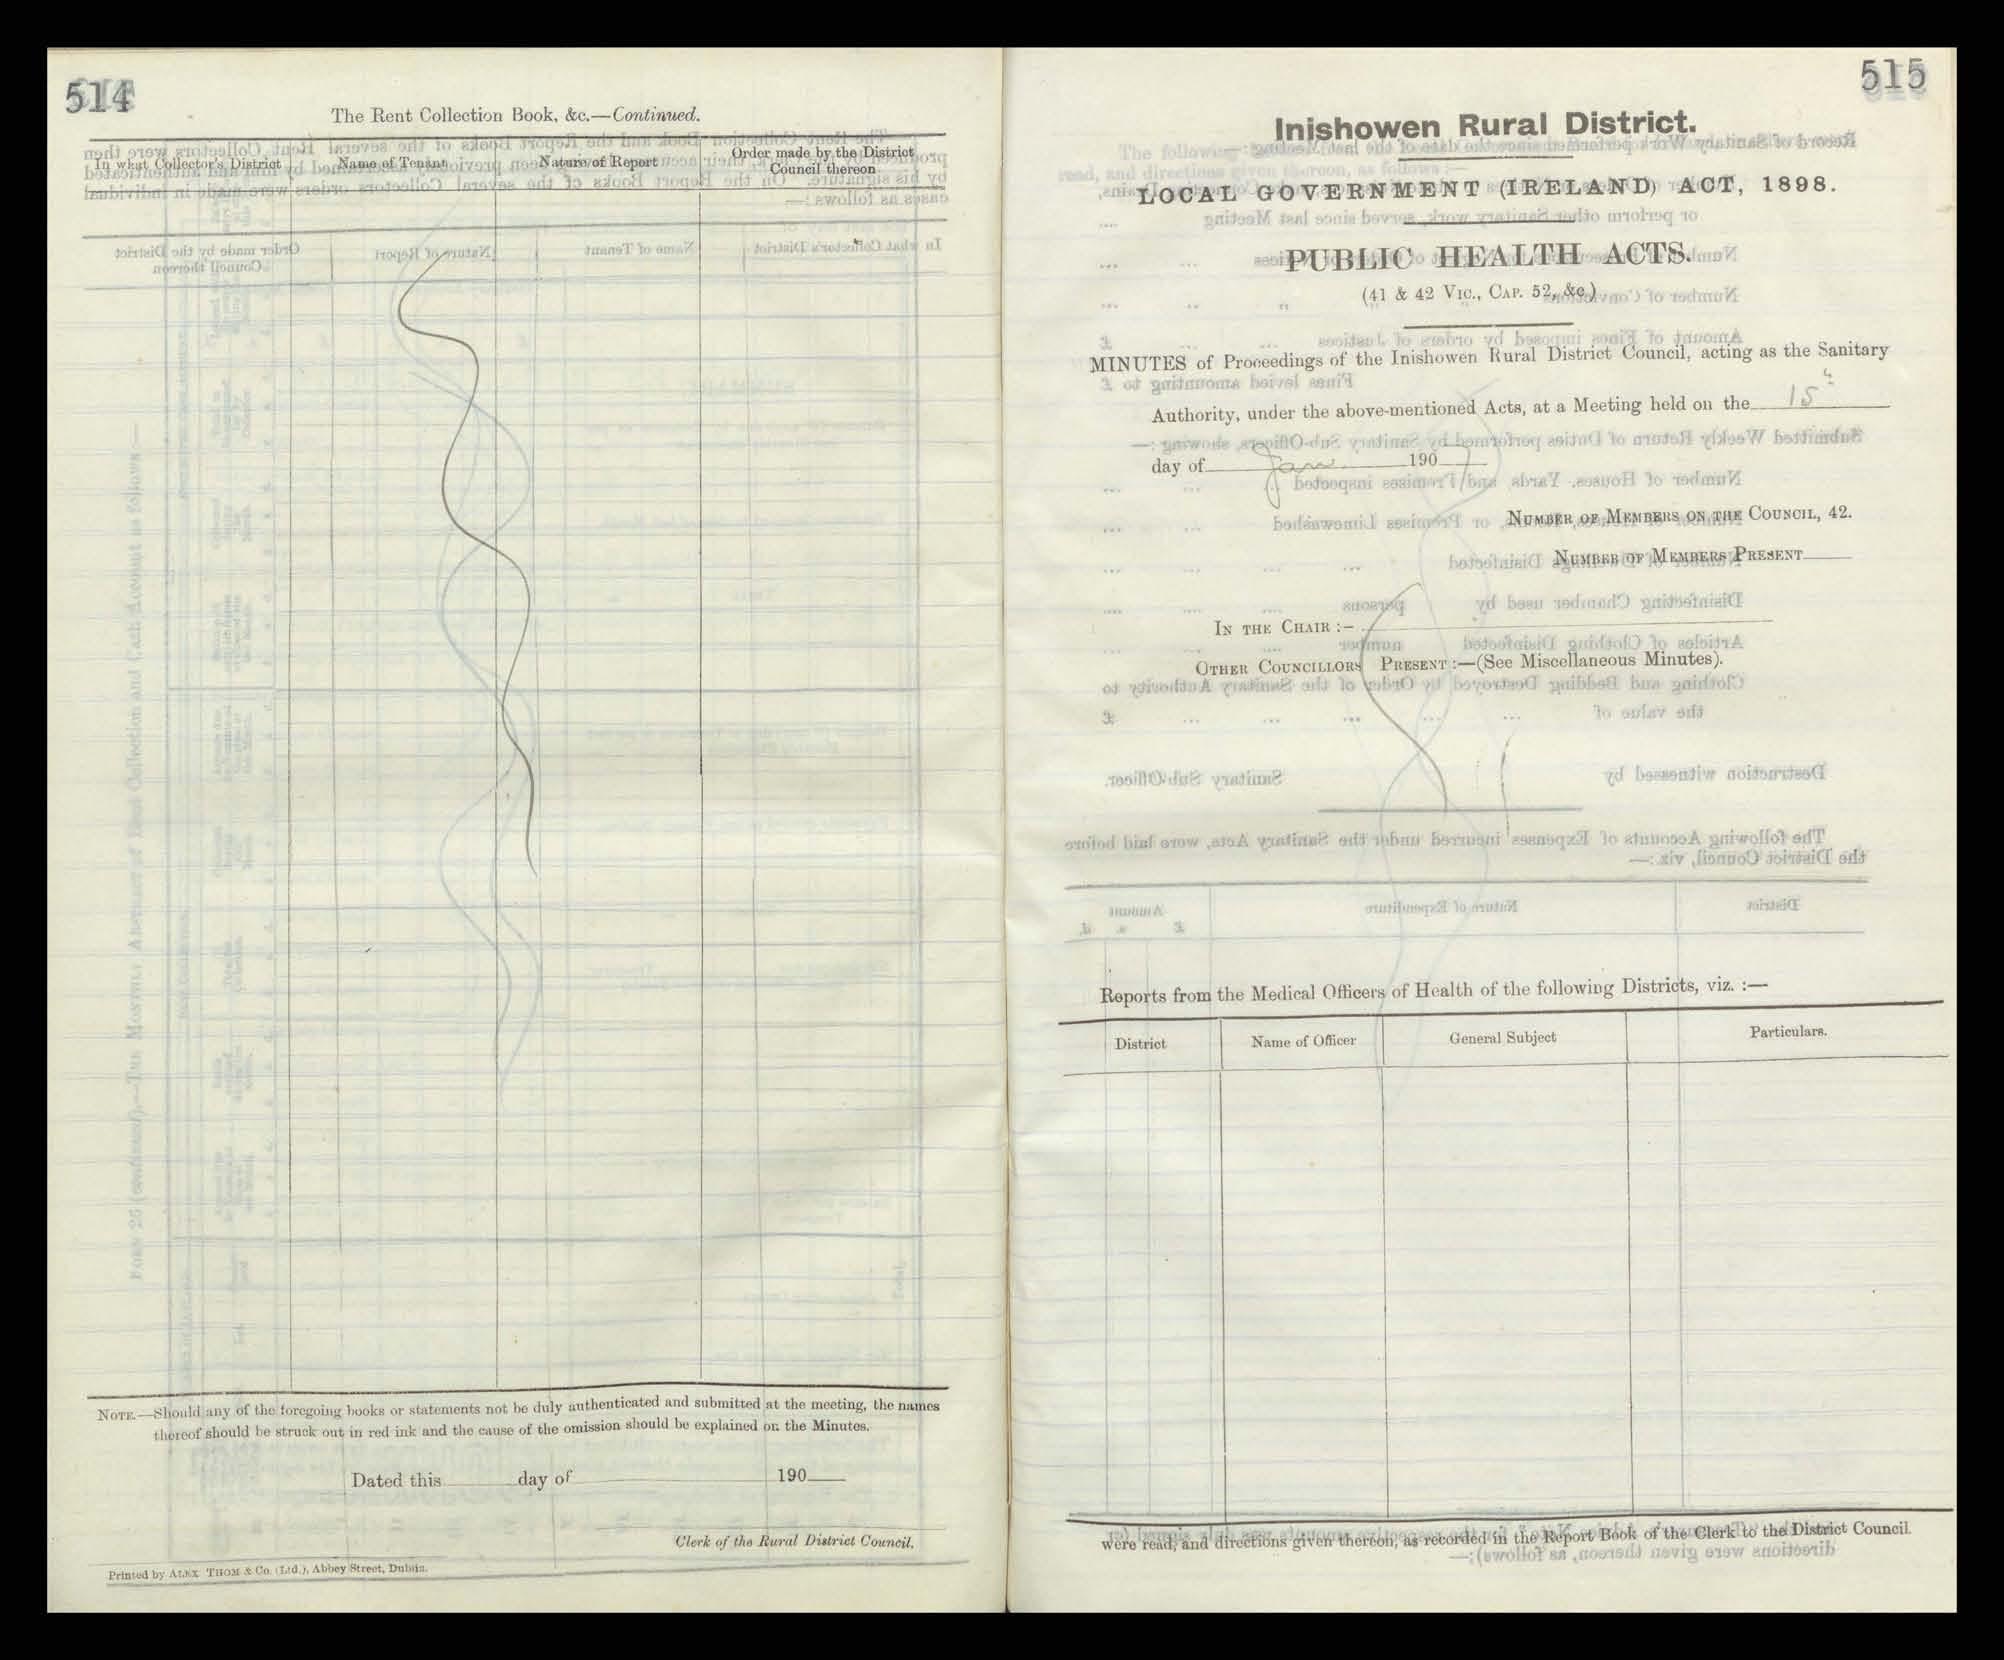 514
The Rent Collection Book, &c.—Continued.
In what Collector's District
Name of Tenant
Nature of Report
Order made by the District
Council thereon
NOTE.—Should any of the foregoing books or statements not be duly authenticated and submitted at the meeting, the names
thereof should be struck out in red ink and the cause of the omission should be explained on the Minutes.
Dated this day of 190
Clerk of the Rural District Council.
Printed by ALEX THOM & Co. (Ltd.), Abbey Street, Dublin.
515
Inishowen Rural District.
LOCAL GOVERNMENT (IRELAND) ACT, 1898.
PUBLIC HEALTH ACTS.
(41 & 42 VIC., CAP. 52, &c.)
MINUTES of Proceedings of the Inishowen Rural District Council, acting as the Sanitary
Authority, under the above-mentioned Acts, at a Meeting held on the 15th
day of Jan 1907
NUMBER OF MEMBERS ON THE COUNCIL, 42.
NUMBER OF MEMBERS PRESENT
IN THE CHAIR :—
OTHER COUNCILLORS PRESENT :—(See Miscellaneous Minutes).
Reports from the Medical Officers of Health of the following Districts, viz. :—
District
Name of Officer
General Subject
Particulars.
were read, and directions given thereon, as recorded in the Report Book of the Clerk to the District Council.